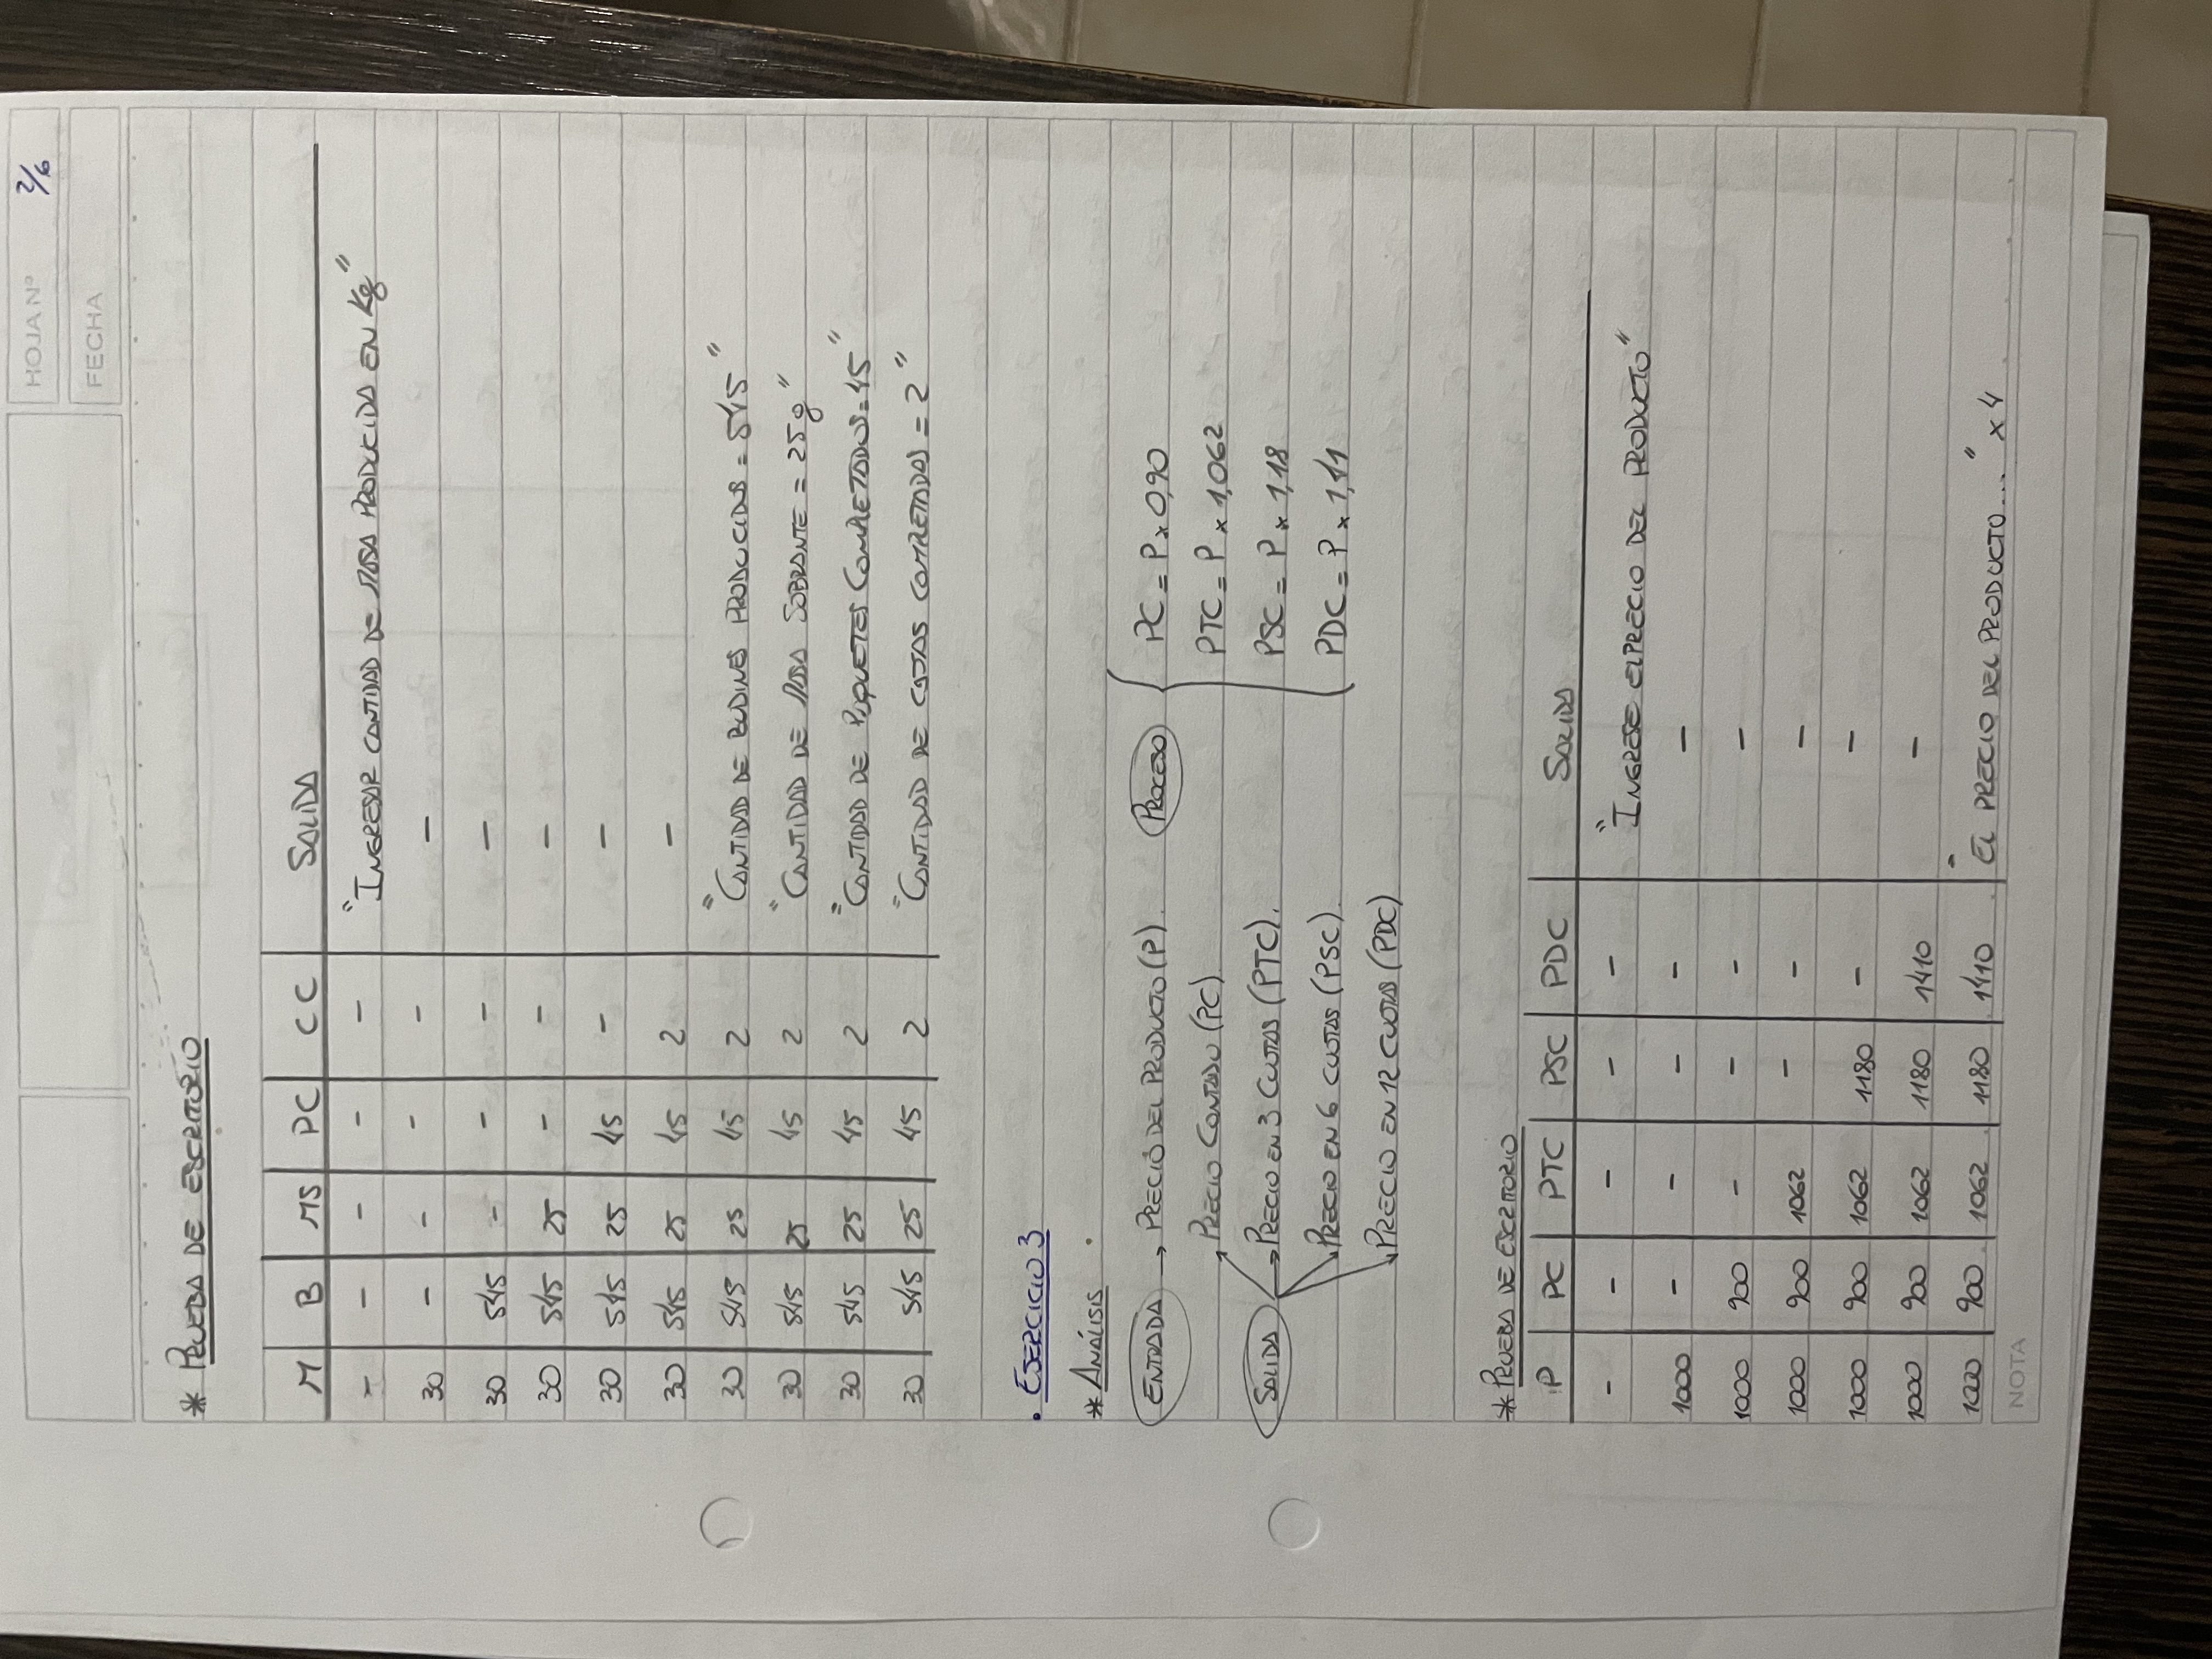 HOJA Nº 2/6
FECHA
* PRUEBA DE ESCRITORIO
M B MS PC CC SALIDA
- - - - - "INGRESAR CANTIDAD DE MASA PRODUCIDA EN Kg"
30 - - - - -
30 545 - - - -
30 545 25 - - -
30 545 25 45 - -
30 545 25 45 2 -
30 545 25 45 2 "CANTIDAD DE BUDINES PRODUCIDOS = 545"
30 545 25 45 2 "CANTIDAD DE MASA SOBRANTE = 25g"
30 545 25 45 2 "CANTIDAD DE PAQUETES COMPLETADOS = 45"
30 545 25 45 2 "CANTIDAD DE CAJAS COMPLETADAS = 2"
. EJERCICIO 3
* ANÁLISIS
ENTRADA → PRECIO DEL PRODUCTO (P).
SALIDA
PRECIO CONTADO (PC)
→ PRECIO EN 3 CUOTAS (PTC).
PRECIO EN 6 CUOTAS (PSC).
PRECIO EN 12 CUOTAS (PDC)
PROCESO
PC = P x 0,90
PTC = P x 1,062
PSC = P x 1,18
PDC = P x 1,41
* PRUEBA DE ESCRITORIO
P PC PTC PSC PDC SALIDA
- - - - - "INGRESE EL PRECIO DEL PRODUCTO"
1000 - - - - -
1000 900 - - - -
1000 900 1062 - - -
1000 900 1062 1180 - -
1000 900 1062 1180 1410 -
1000 900 1062 1180 1410 "EL PRECIO DEL PRODUCTO..." x 4
NOTA